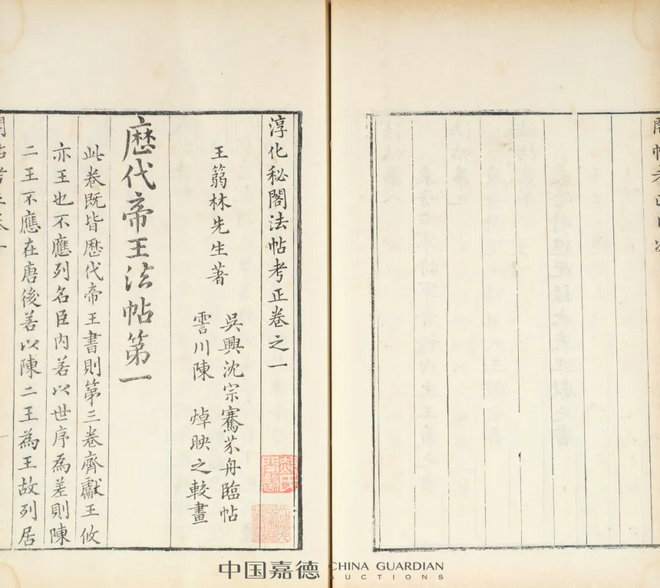 淳化秘閣法帖考正卷之一
王篛林先生著
吳興沈宗騫芥舟臨帖
霅川陳 焯映之較畫
歷代帝王法帖第一
此卷既皆歷代帝王書則第三卷齊獻王攸
亦王也不應列名臣内若以世序為差則陳
二王不應在唐後若以陳二王為王故列居
中国嘉德 CHINA GUARDIAN
AUCTIONS